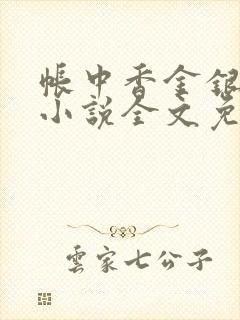 帳中香金銀
小說全文免
雲家七公子